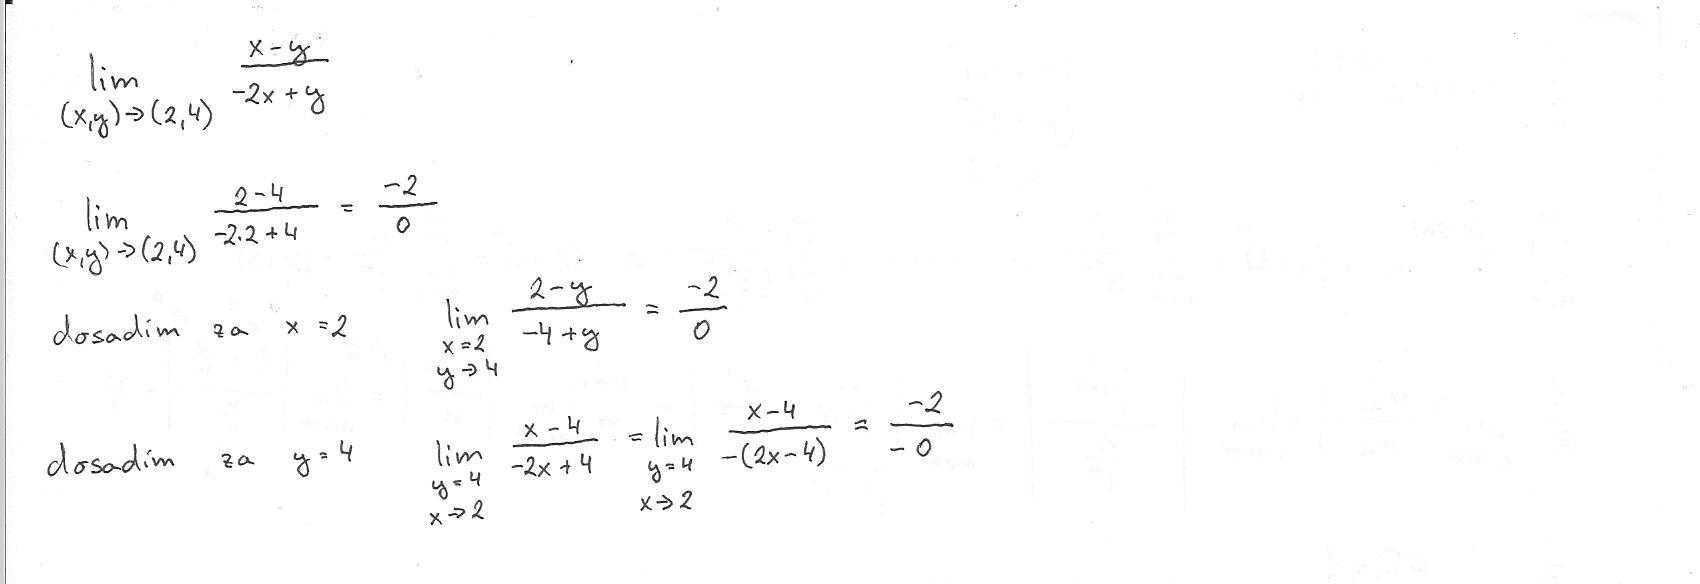 lim (x,y)→(2,4) (x-y)/(-2x+y)
lim (x,y)→(2,4) (2-4)/(-2.2+4) = -2/0
dosadím za x=2 lim x=2 y→4 (2-y)/(-4+y) = -2/0
dosadím za y=4 lim y=4 x→2 (x-4)/(-2x+4) = lim y=4 x→2 (x-4)/(-(2x-4)) = -2/-0